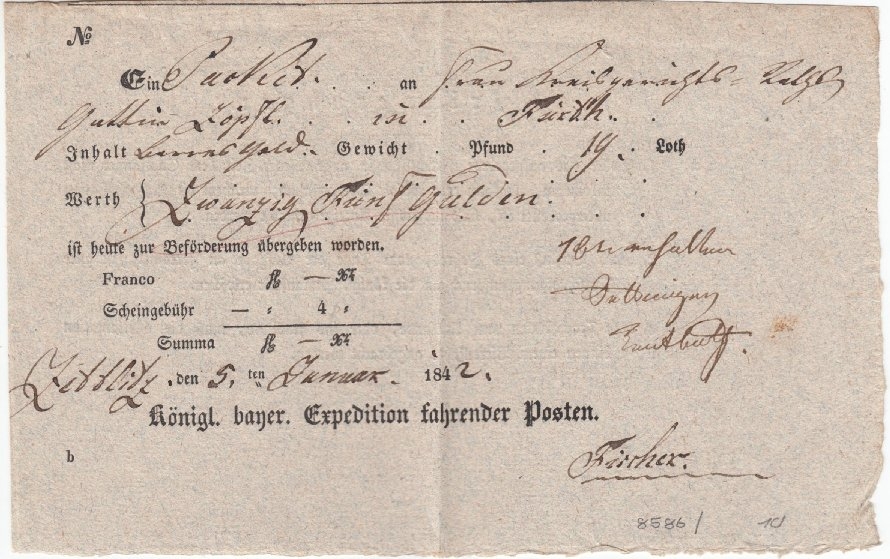 №
Ein Packet. an Frau Kreisgerichts-Raths
Gattin Zöpfl. in Fürth.
Inhalt baares Geld. Gewicht . Pfund . 19. Loth
Werth { Zwanzig Fünf Gulden.
ist heute zur Beförderung übergeben worden.
Franco fl. — xr.
Scheingebühr — „ 4 „
Summa fl. — xr.
Zettlitz, den 5. ten Januar. 1842.
Königl. bayer. Expedition fahrender Posten.
b
Fischer.
8586/